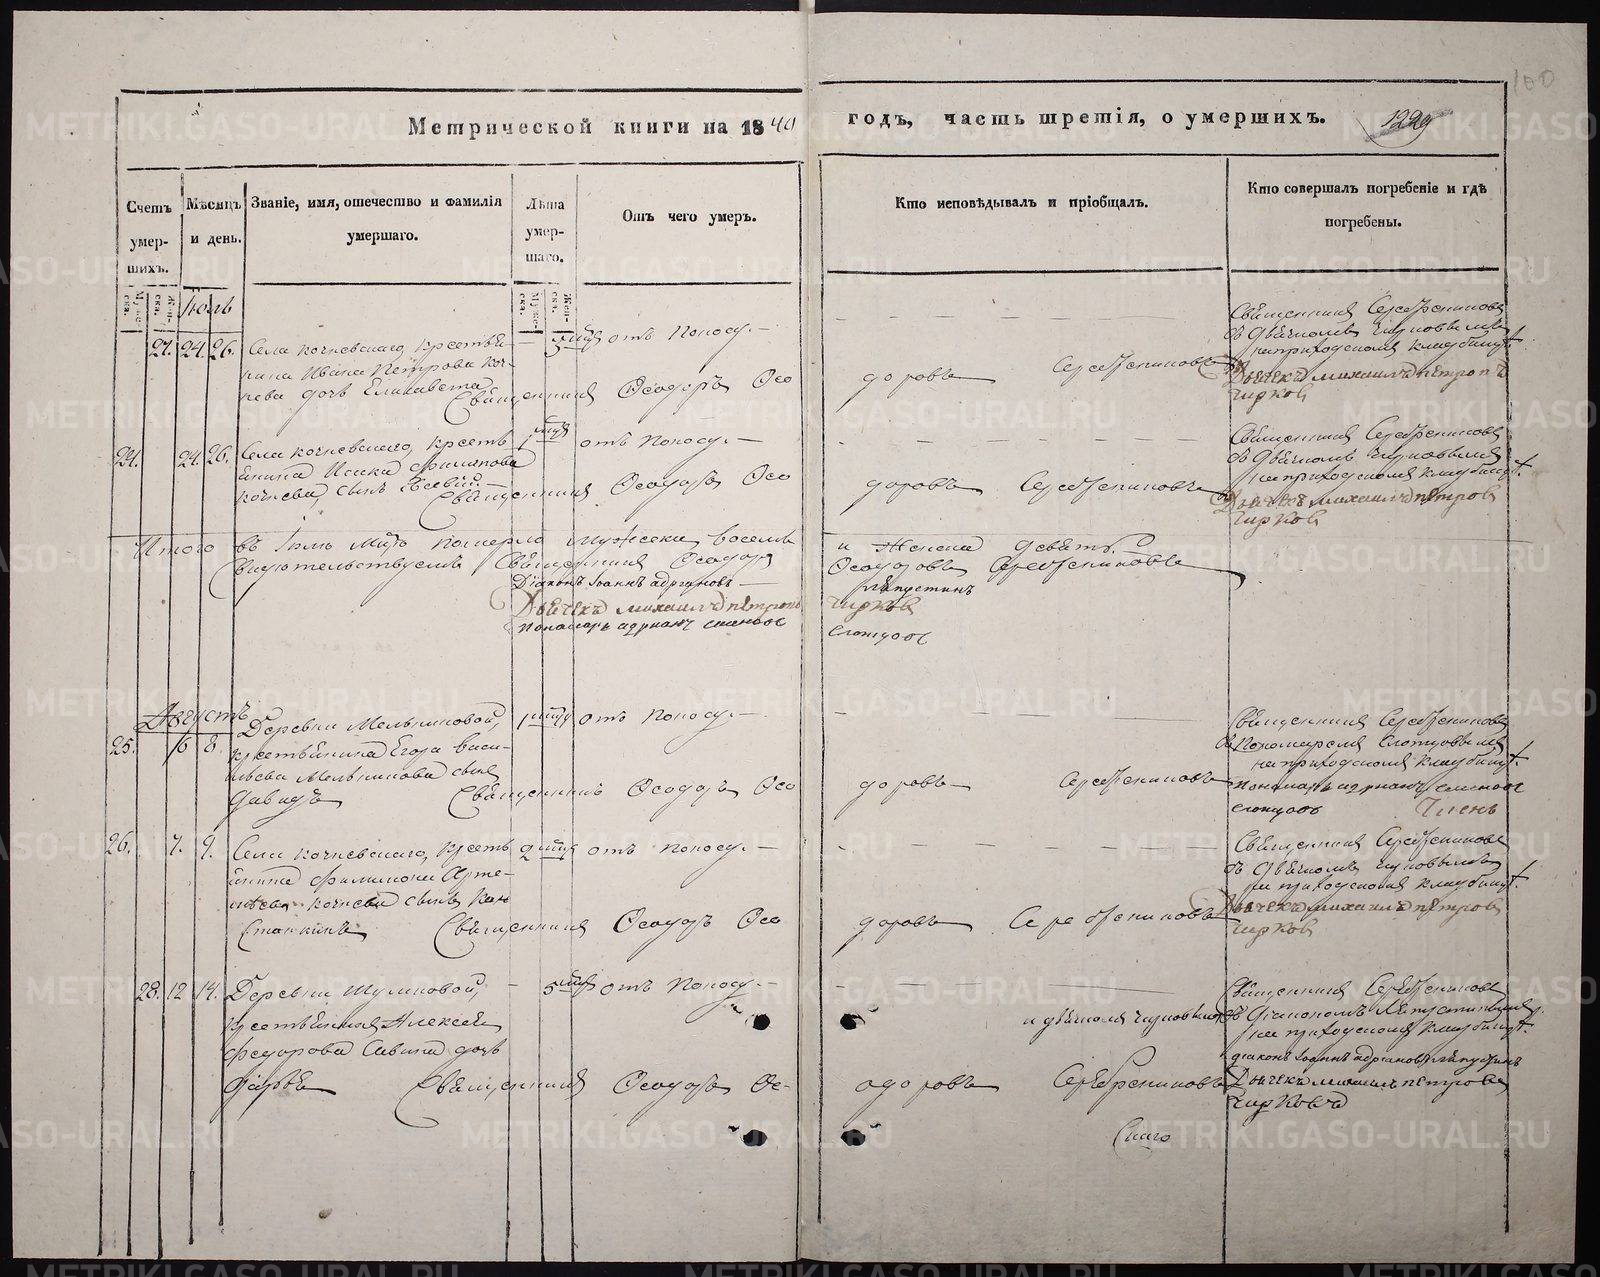 100
Метрической книги на 1840 годъ, часть третія, о умершихъ.
1229
Счетъ умер-шихъ.
Мѣсяцъ и день.
Званіе, имя, отечество и фамилія умершаго.
Лѣта умер-шаго.
Отъ чего умеръ.
Кто исповѣдывалъ и пріобщалъ.
Кто совершалъ погребеніе и гдѣ погребены.
Муже-ска.
Жен-ска.
Муже-ска.
Жен-ска.
Іюль
27. 24. 26. Села Кочневскаго, крестья-
нина Ивана Петрова Коч-
нева дочь Елисавета
от поносу.
Священникъ Ѳеодоръ Ѳео
доровъ Серебренниковъ
Священникъ Серебренниковъ
съ Дьячкомъ Чирковымъ
на приходскомъ кладбищѣ.
Дьячекъ Михаилъ Петровъ
Чирковъ
24. 24. 26. Села Кочневскаго, кресть
янина Исака Филипова
Кочнева, сынъ
отъ поносу.
Священникъ Ѳеодоръ Ѳео
доровъ Серебренниковъ
Священникъ Серебренниковъ
съ Дьячкомъ Чирковымъ
на приходскомъ кладбищѣ.
Дьячекъ Михаилъ Петровъ
Чирковъ
Итого въ Іюлѣ мцѣ померло мужеска восемь
и женска девять.
Свидетельствуемъ Священникъ Ѳеодоръ
Ѳеодоровъ Серебренниковъ
Діаконъ Іоаннъ Адріановъ
Ляпустинъ
Дьячекъ Михаилъ Петровъ
Чирковъ
Пономарь Адріанъ
Словцовъ
Августъ
25. 6 8. Деревни Мельниковой,
крестьянина Егора Васи-
льева Мельникова сынъ
Давидъ
отъ поносу.
Священникъ Ѳеодоръ Ѳео
доровъ Серебренниковъ
Священникъ Серебренниковъ
съ Пономаремъ Словцовымъ
на приходскомъ кладбищѣ.
Пономарь Адріанъ
Словцовъ
26. 7. 9. Села Кочневскаго, кресть
янина Филимона Арте-
мьева Кочнева сынъ Кон
стантинъ
2 отъ поносу.
Священникъ Ѳеодоръ Ѳео
доровъ Серебренниковъ
Священникъ Серебренниковъ
съ Дьячкомъ Чирковымъ
на приходскомъ кладбищѣ.
Дьячекъ Михаилъ Петровъ
Чирковъ
28. 12 14. Деревни Шулиновой,
крестьянина Алексея
Федорова Савина дочь
Дарья
5 отъ поносу.
Священникъ Ѳеодоръ Ѳе-
одоровъ Серебренниковъ
и дьячкомъ Чирковымъ
Священникъ Серебренниковъ
съ Діакономъ Ляпустинымъ
на приходскомъ кладбищѣ.
Діаконъ Іоаннъ Адріановъ Ляпустинъ
Дьячекъ Михаилъ Петровъ
Чирковъ
METRIKI.GASO-URAL.RU